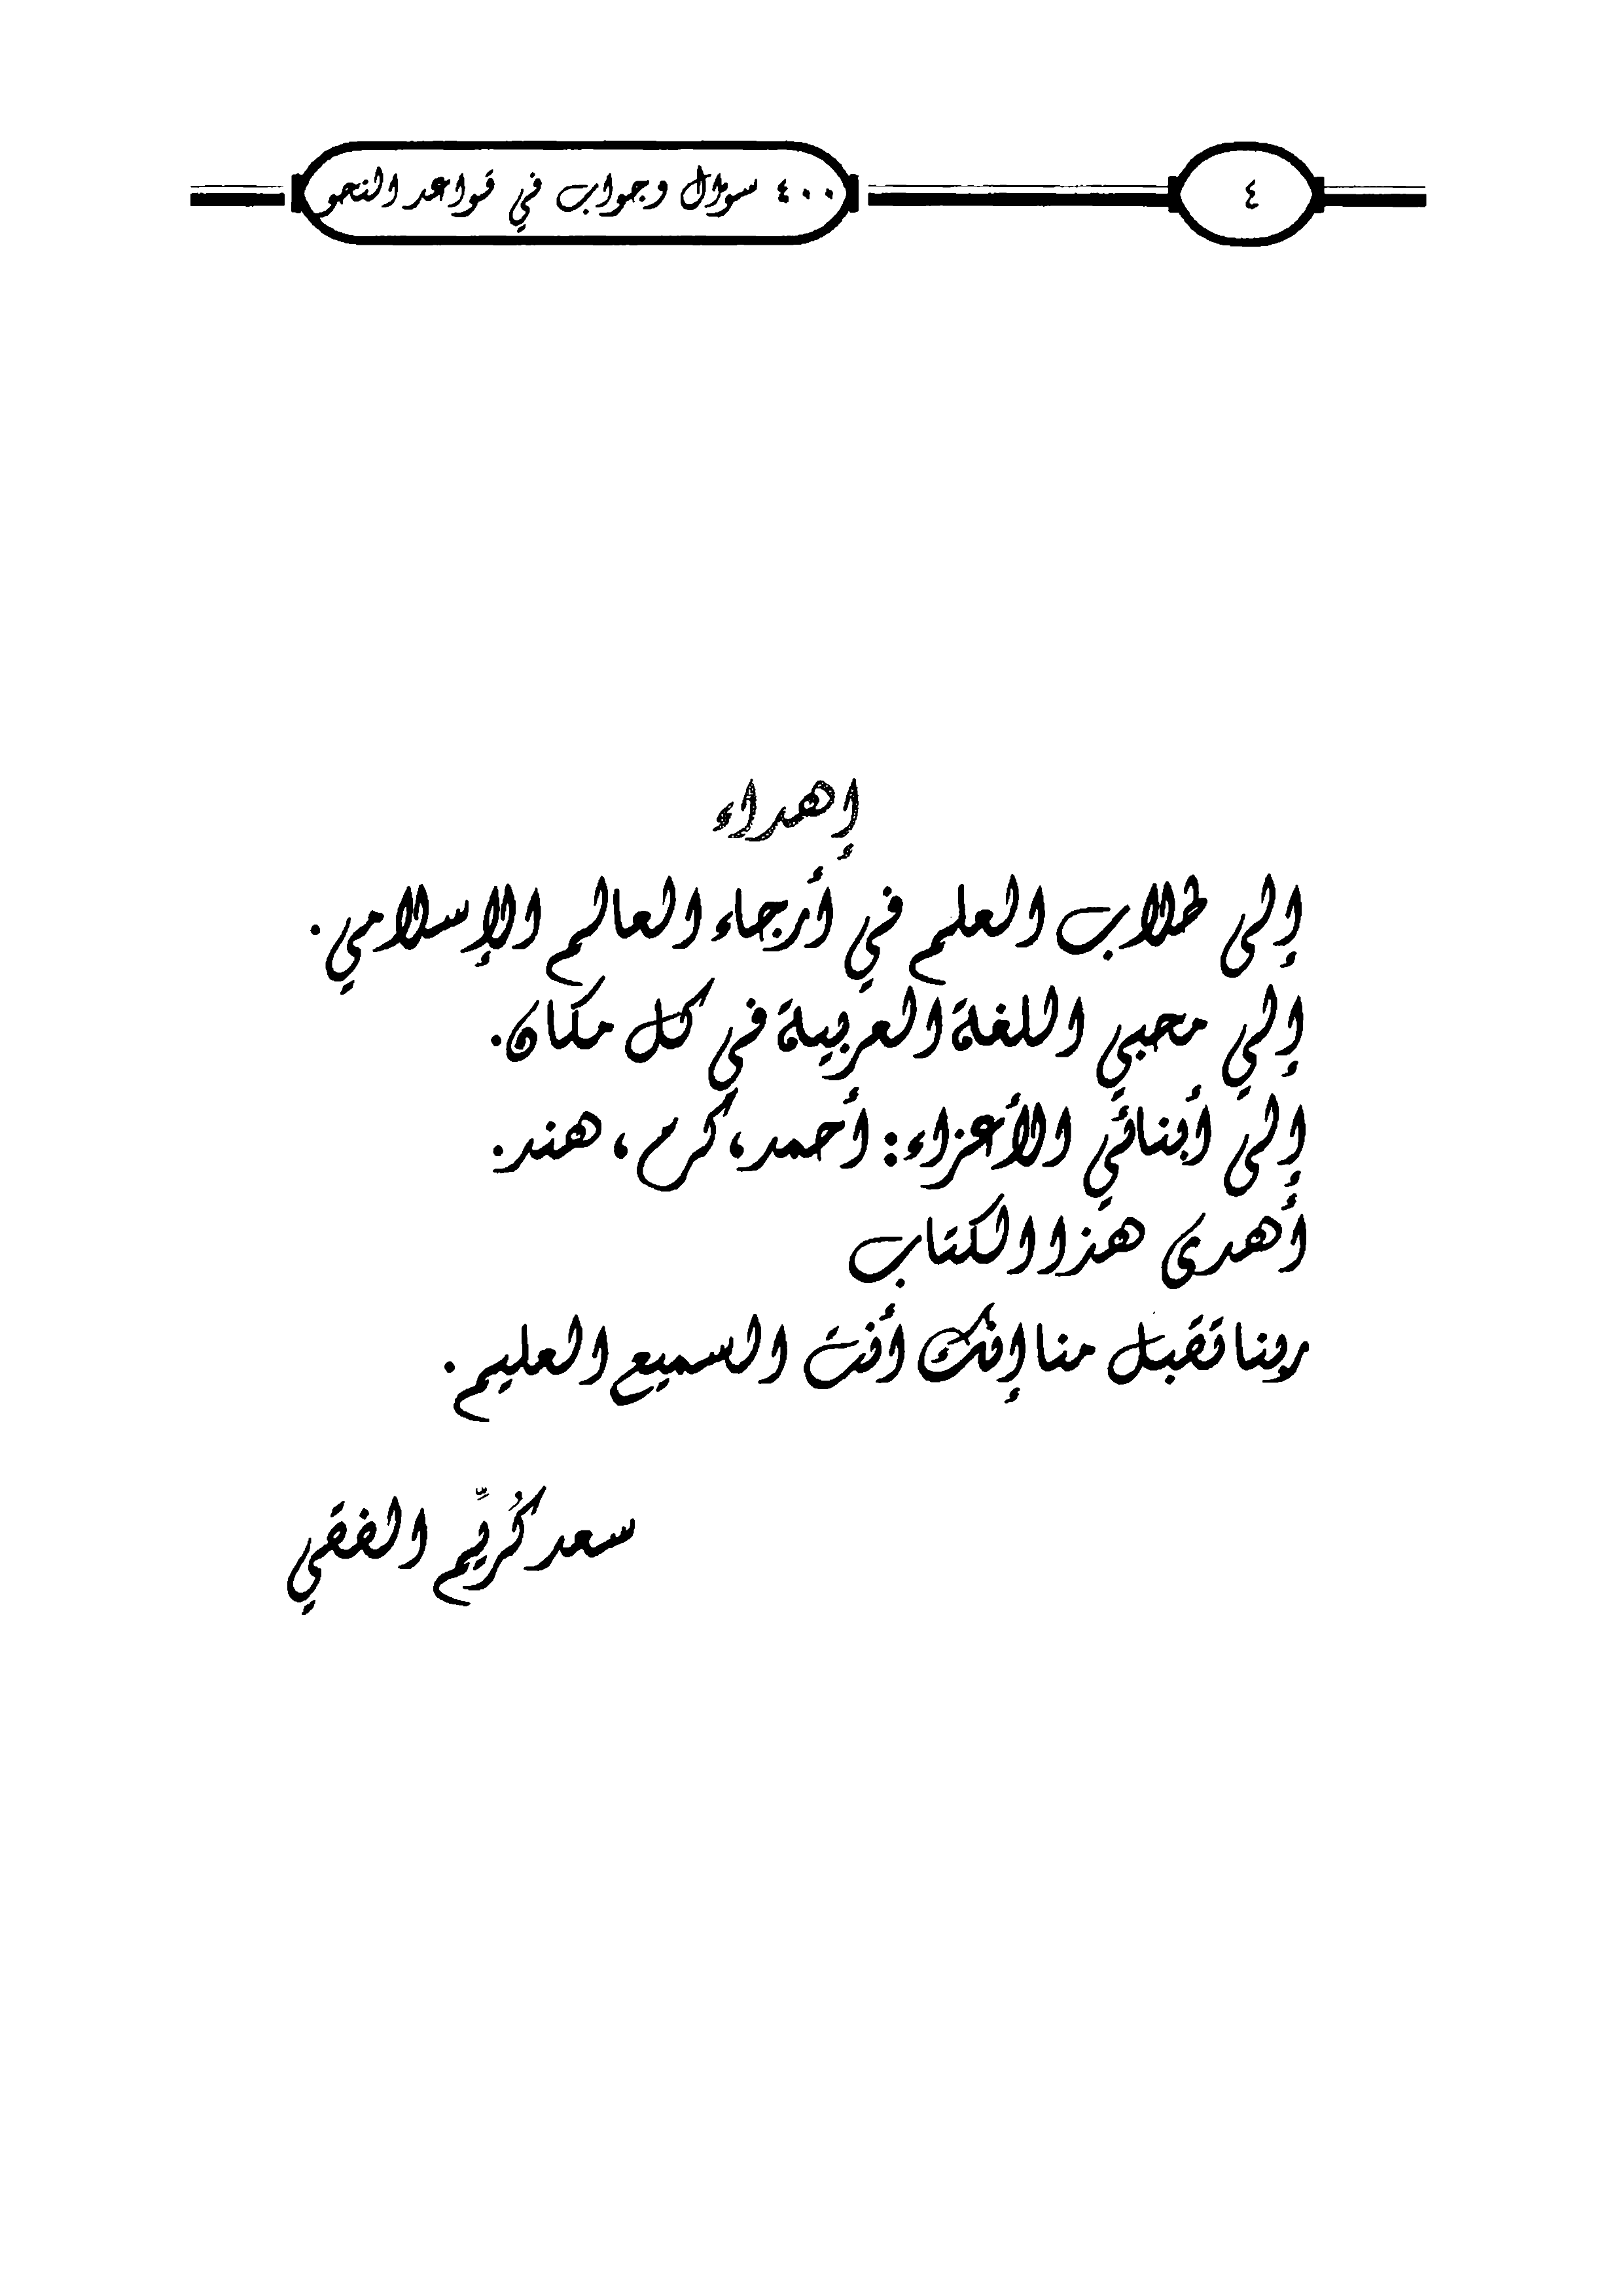 ٤
٤٠٠ سؤال وجواب في قواعد النحو
إهداء
إلى طلاب العلم في أرجاء العالم الإسلامي.
إلى محبي اللغة العربية في كل مكان.
إلى أبنائي الأعزاء: أحمد، كرم، هند.
أهدى هذا الكتاب
ربنا تقبل منا إنك أنت السميع العليم.
سعد كُريِّم الفقي